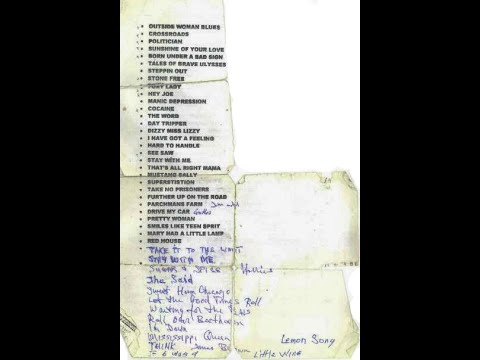 OUTSIDE WOMAN BLUES
CROSSROADS
POLITICIAN
SUNSHINE OF YOUR LOVE
BORN UNDER A BAD SIGN
TALES OF BRAVE ULYSSES
STEPPIN OUT
STONE FREE
FOXY LADY
HEY JOE
MANIC DEPRESSION
COCAINE
THE WORD
DAY TRIPPER
DIZZY MISS LIZZY
I HAVE GOT A FEELING
HARD TO HANDLE
SEE SAW
STAY WITH ME
THAT'S ALL RIGHT MAMA
MUSTANG SALLY
SUPERSTITION
TAKE NO PRISONERS
FURTHER UP ON THE ROAD
PARCHMANS FARM
DRIVE MY CAR
PRETTY WOMAN
SMILES LIKE TEEN SPIRIT
MARY HAD A LITTLE LAMP
RED HOUSE
TAKE IT TO THE
STAY WITH ME
SUGAR & SPICE
She Said
Sweet Home Chicago
Let the Good Times Roll
Waiting for the
Roll Over Beethoven
I'm Down
Mississippi Queen
Lemon Song
THINK James
IF 6 was 9
Little Wing